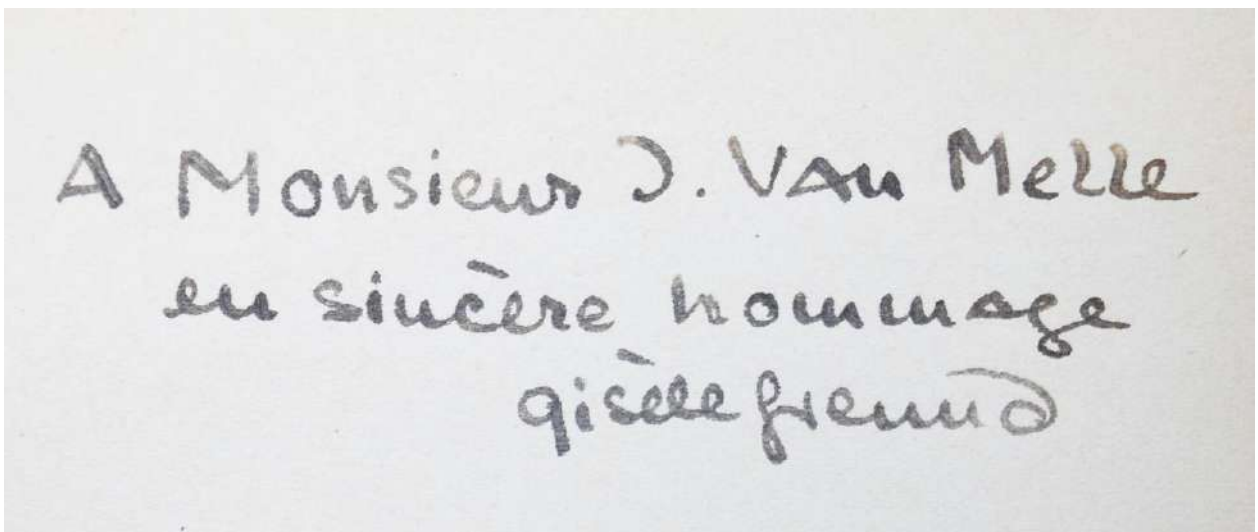 A Monsieur J. Van Melle
en sincère hommage
gisèle freund